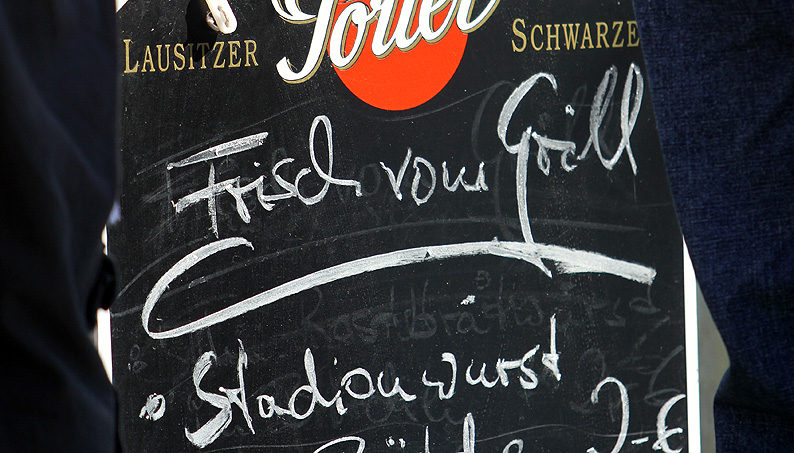 Porter
LAUSITZER SCHWARZE
Frisch vom Grill
Stadionwurst 2,-€